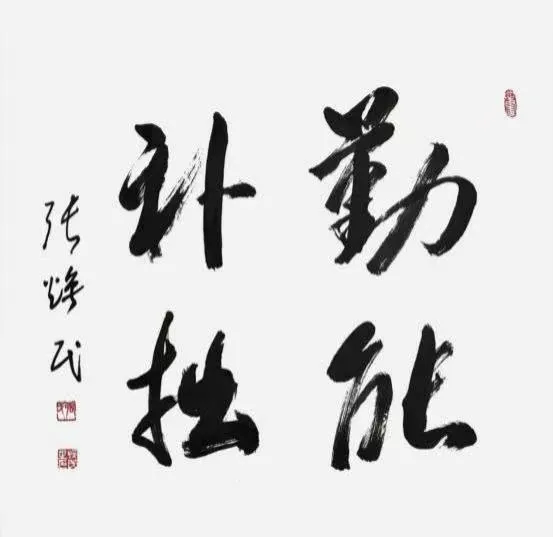 勤能
补拙
张 民